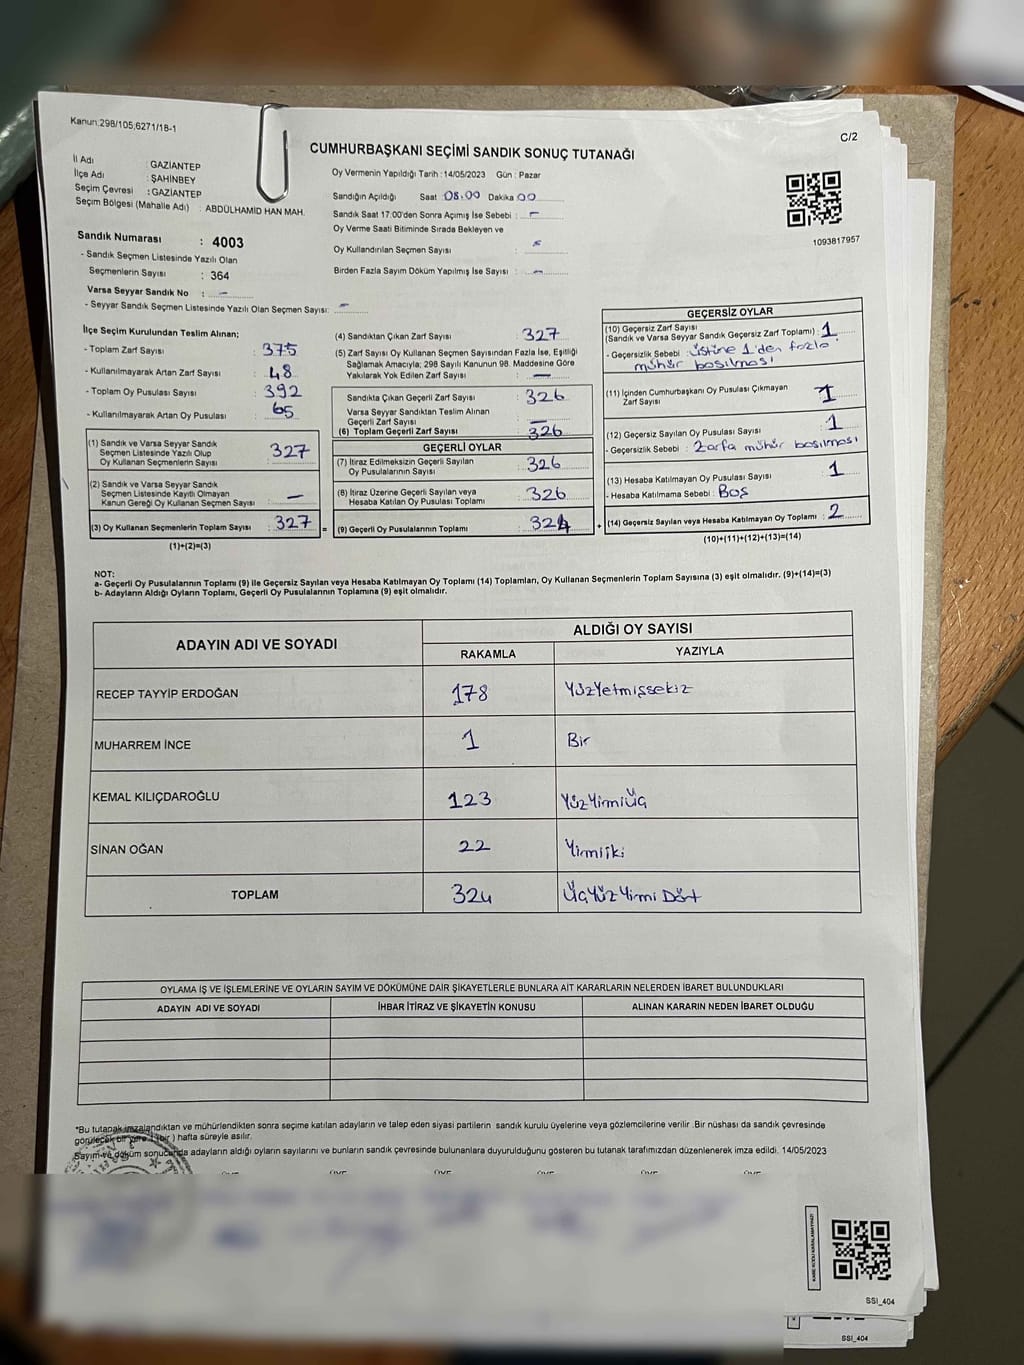 Kanun:298/105;6271/18-1
C/2
CUMHURBAŞKANI SEÇİMİ SANDIK SONUÇ TUTANAĞI
İl Adı : GAZİANTEP
İlçe Adı : ŞAHİNBEY
Seçim Çevresi : GAZİANTEP
Seçim Bölgesi (Mahalle Adı) : ABDÜLHAMİD HAN MAH.
Sandık Numarası : 4003
- Sandık Seçmen Listesinde Yazılı Olan
Seçmenlerin Sayısı : 364
Varsa Seyyar Sandık No : -
- Seyyar Sandık Seçmen Listesinde Yazılı Olan Seçmen Sayısı: -
Oy Vermenin Yapıldığı Tarih : 14/05/2023 Gün : Pazar
Sandığın Açıldığı Saat 08.00 Dakika 00
Sandık Saat 17:00'den Sonra Açımış İse Sebebi : -
Oy Verme Saati Bitiminde Sırada Bekleyen ve
Oy Kullandırılan Seçmen Sayısı :
Birden Fazla Sayım Döküm Yapılmış İse Sayısı : -
1093817957
İlçe Seçim Kurulundan Teslim Alınan;
- Toplam Zarf Sayısı : 375
- Kullanılmayarak Artan Zarf Sayısı : 48
- Toplam Oy Pusulası Sayısı : 392
- Kullanılmayarak Artan Oy Pusulası : 65
(1) Sandık ve Varsa Seyyar Sandık
Seçmen Listesinde Yazılı Olup
Oy Kullanan Seçmenlerin Sayısı : 327
(2) Sandık ve Varsa Seyyar Sandık
Seçmen Listesinde Kayıtlı Olmayan
Kanun Gereği Oy Kullanan Seçmen Sayısı : -
(3) Oy Kullanan Seçmenlerin Toplam Sayısı : 327 =
(1)+(2)=(3)
(4) Sandıktan Çıkan Zarf Sayısı : 327
(5) Zarf Sayısı Oy Kullanan Seçmen Sayısından Fazla İse, Eşitliği
Sağlamak Amacıyla; 298 Sayılı Kanunun 98. Maddesine Göre
Yakılarak Yok Edilen Zarf Sayısı : -
Sandıkta Çıkan Geçerli Zarf Sayısı : 326
Varsa Seyyar Sandıktan Teslim Alınan
Geçerli Zarf Sayısı : -
(6) Toplam Geçerli Zarf Sayısı : 326
GEÇERLİ OYLAR
(7) İtiraz Edilmeksizin Geçerli Sayılan
Oy Pusulalarının Sayısı : 326
(8) İtiraz Üzerine Geçerli Sayılan veya
Hesaba Katılan Oy Pusulası Toplamı : 326
(9) Geçerli Oy Pusulalarının Toplamı : 324 +
GEÇERSİZ OYLAR
(10) Geçersiz Zarf Sayısı
(Sandık ve Varsa Seyyar Sandık Geçersiz Zarf Toplamı) : 1
- Geçersizlik Sebebi : üstüne 1'den fazla
mühür basılması
(11) İçinden Cumhurbaşkanı Oy Pusulası Çıkmayan
Zarf Sayısı : 1
(12) Geçersiz Sayılan Oy Pusulası Sayısı : 1
- Geçersizlik Sebebi : Zarfa mühür basılması
(13) Hesaba Katılmayan Oy Pusulası Sayısı : 1
- Hesaba Katılmama Sebebi : Boş
(14) Geçersiz Sayılan veya Hesaba Katılmayan Oy Toplamı : 2
(10)+(11)+(12)+(13)=(14)
NOT:
a- Geçerli Oy Pusulalarının Toplamı (9) ile Geçersiz Sayılan veya Hesaba Katılmayan Oy Toplamı (14) Toplamları, Oy Kullanan Seçmenlerin Toplam Sayısına (3) eşit olmalıdır. (9)+(14)=(3)
b- Adayların Aldığı Oyların Toplamı, Geçerli Oy Pusulalarının Toplamına (9) eşit olmalıdır.
ADAYIN ADI VE SOYADI
ALDIĞI OY SAYISI
RAKAMLA YAZIYLA
RECEP TAYYİP ERDOĞAN 178 Yüzyetmişsekiz
MUHARREM İNCE 1 Bir
KEMAL KILIÇDAROĞLU 123 YüzYirmiÜç
SİNAN OĞAN 22 Yirmiiki
TOPLAM 324 ÜçYüzYirmi Dört
OYLAMA İŞ VE İŞLEMLERİNE VE OYLARIN SAYIM VE DÖKÜMÜNE DAİR ŞİKAYETLERLE BUNLARA AİT KARARLARIN NELERDEN İBARET BULUNDUKLARI
ADAYIN ADI VE SOYADI İHBAR İTİRAZ VE ŞİKAYETİN KONUSU ALINAN KARARIN NEDEN İBARET OLDUĞU
*Bu tutanak imzalandıktan ve mühürlendikten sonra seçime katılan adayların ve talep eden siyasi partilerin sandık kurulu üyelerine veya gözlemcilerine verilir .Bir nüshası da sandık çevresinde
görülecek bir yere 1 (bir ) hafta süreyle asılır.
Sayım ve döküm sonucunda adayların aldığı oyların sayılarını ve bunların sandık çevresinde bulunanlara duyurulduğunu gösteren bu tutanak tarafımızdan düzenlenerek imza edildi. 14/05/2023
SSI_404
SSI_404